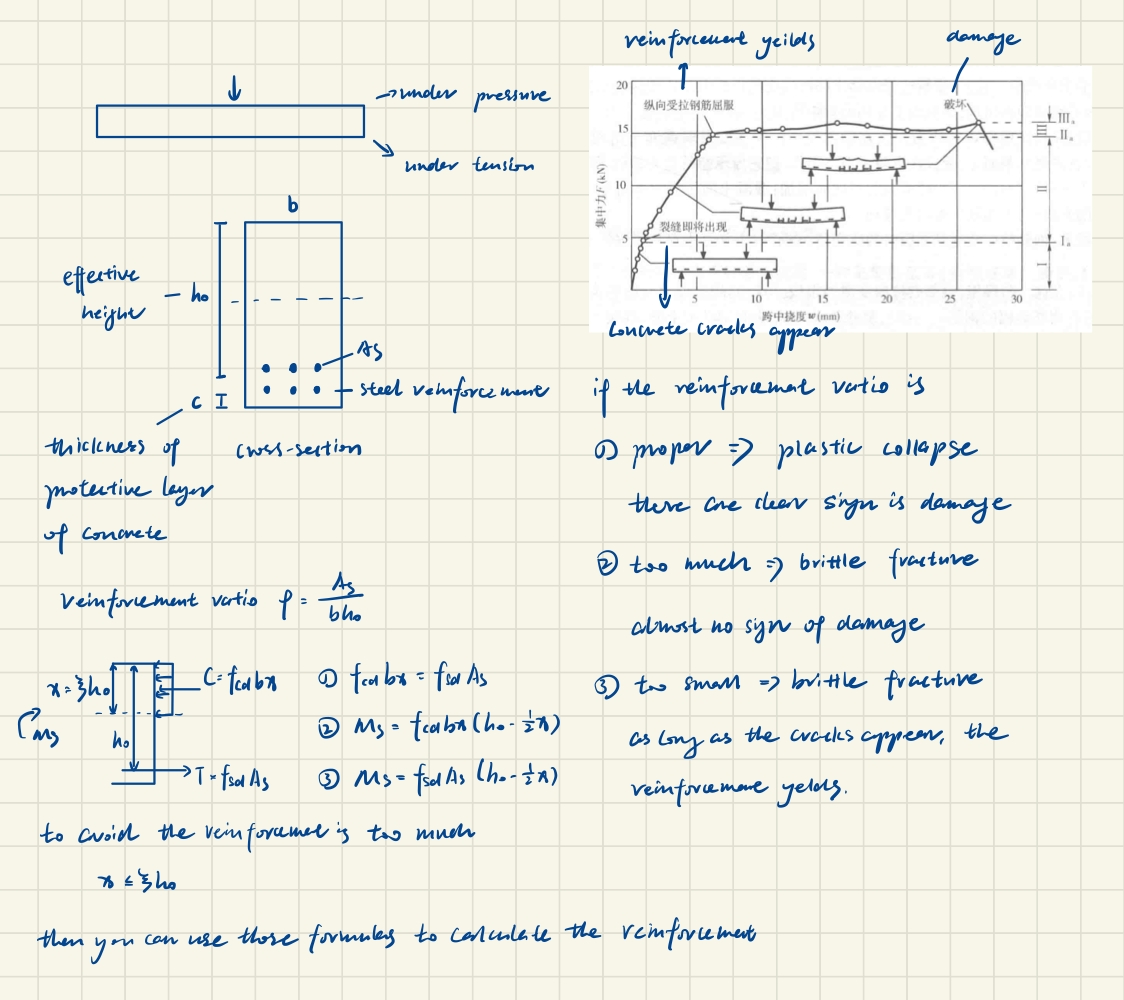 under pressure
under tension
b
effective
height
h₀
As
steel reinforcement
c
thickness of
protective layer
of concrete
cross-section
reinforcement ratio ρ = As / bh₀
x = ξh₀
C = fcd bx
Ms
h₀
T = fsd As
① fcd bx = fsd As
② Ms = fcd bx (h₀ - ½x)
③ Ms = fsd As (h₀ - ½x)
to avoid the reinforcement is too much
x ≤ ξh₀
then you can use those formulas to calculate the reinforcement
reinforcement yeilds
damage
20
15
10
5
集中力F(kN)
纵向受拉钢筋屈服
破坏
裂缝即将出现
Ⅲa
Ⅲ
Ⅱa
Ⅱ
Ⅰa
Ⅰ
5 10 15 20 25 30
跨中挠度w(mm)
Concrete cracks appear
if the reinforcement ratio is
① proper => plastic collapse
there are clear sign is damage
② too much => brittle fracture
almost no sign of damage
③ too small => brittle fracture
as long as the cracks appear, the
reinforcement yelds.